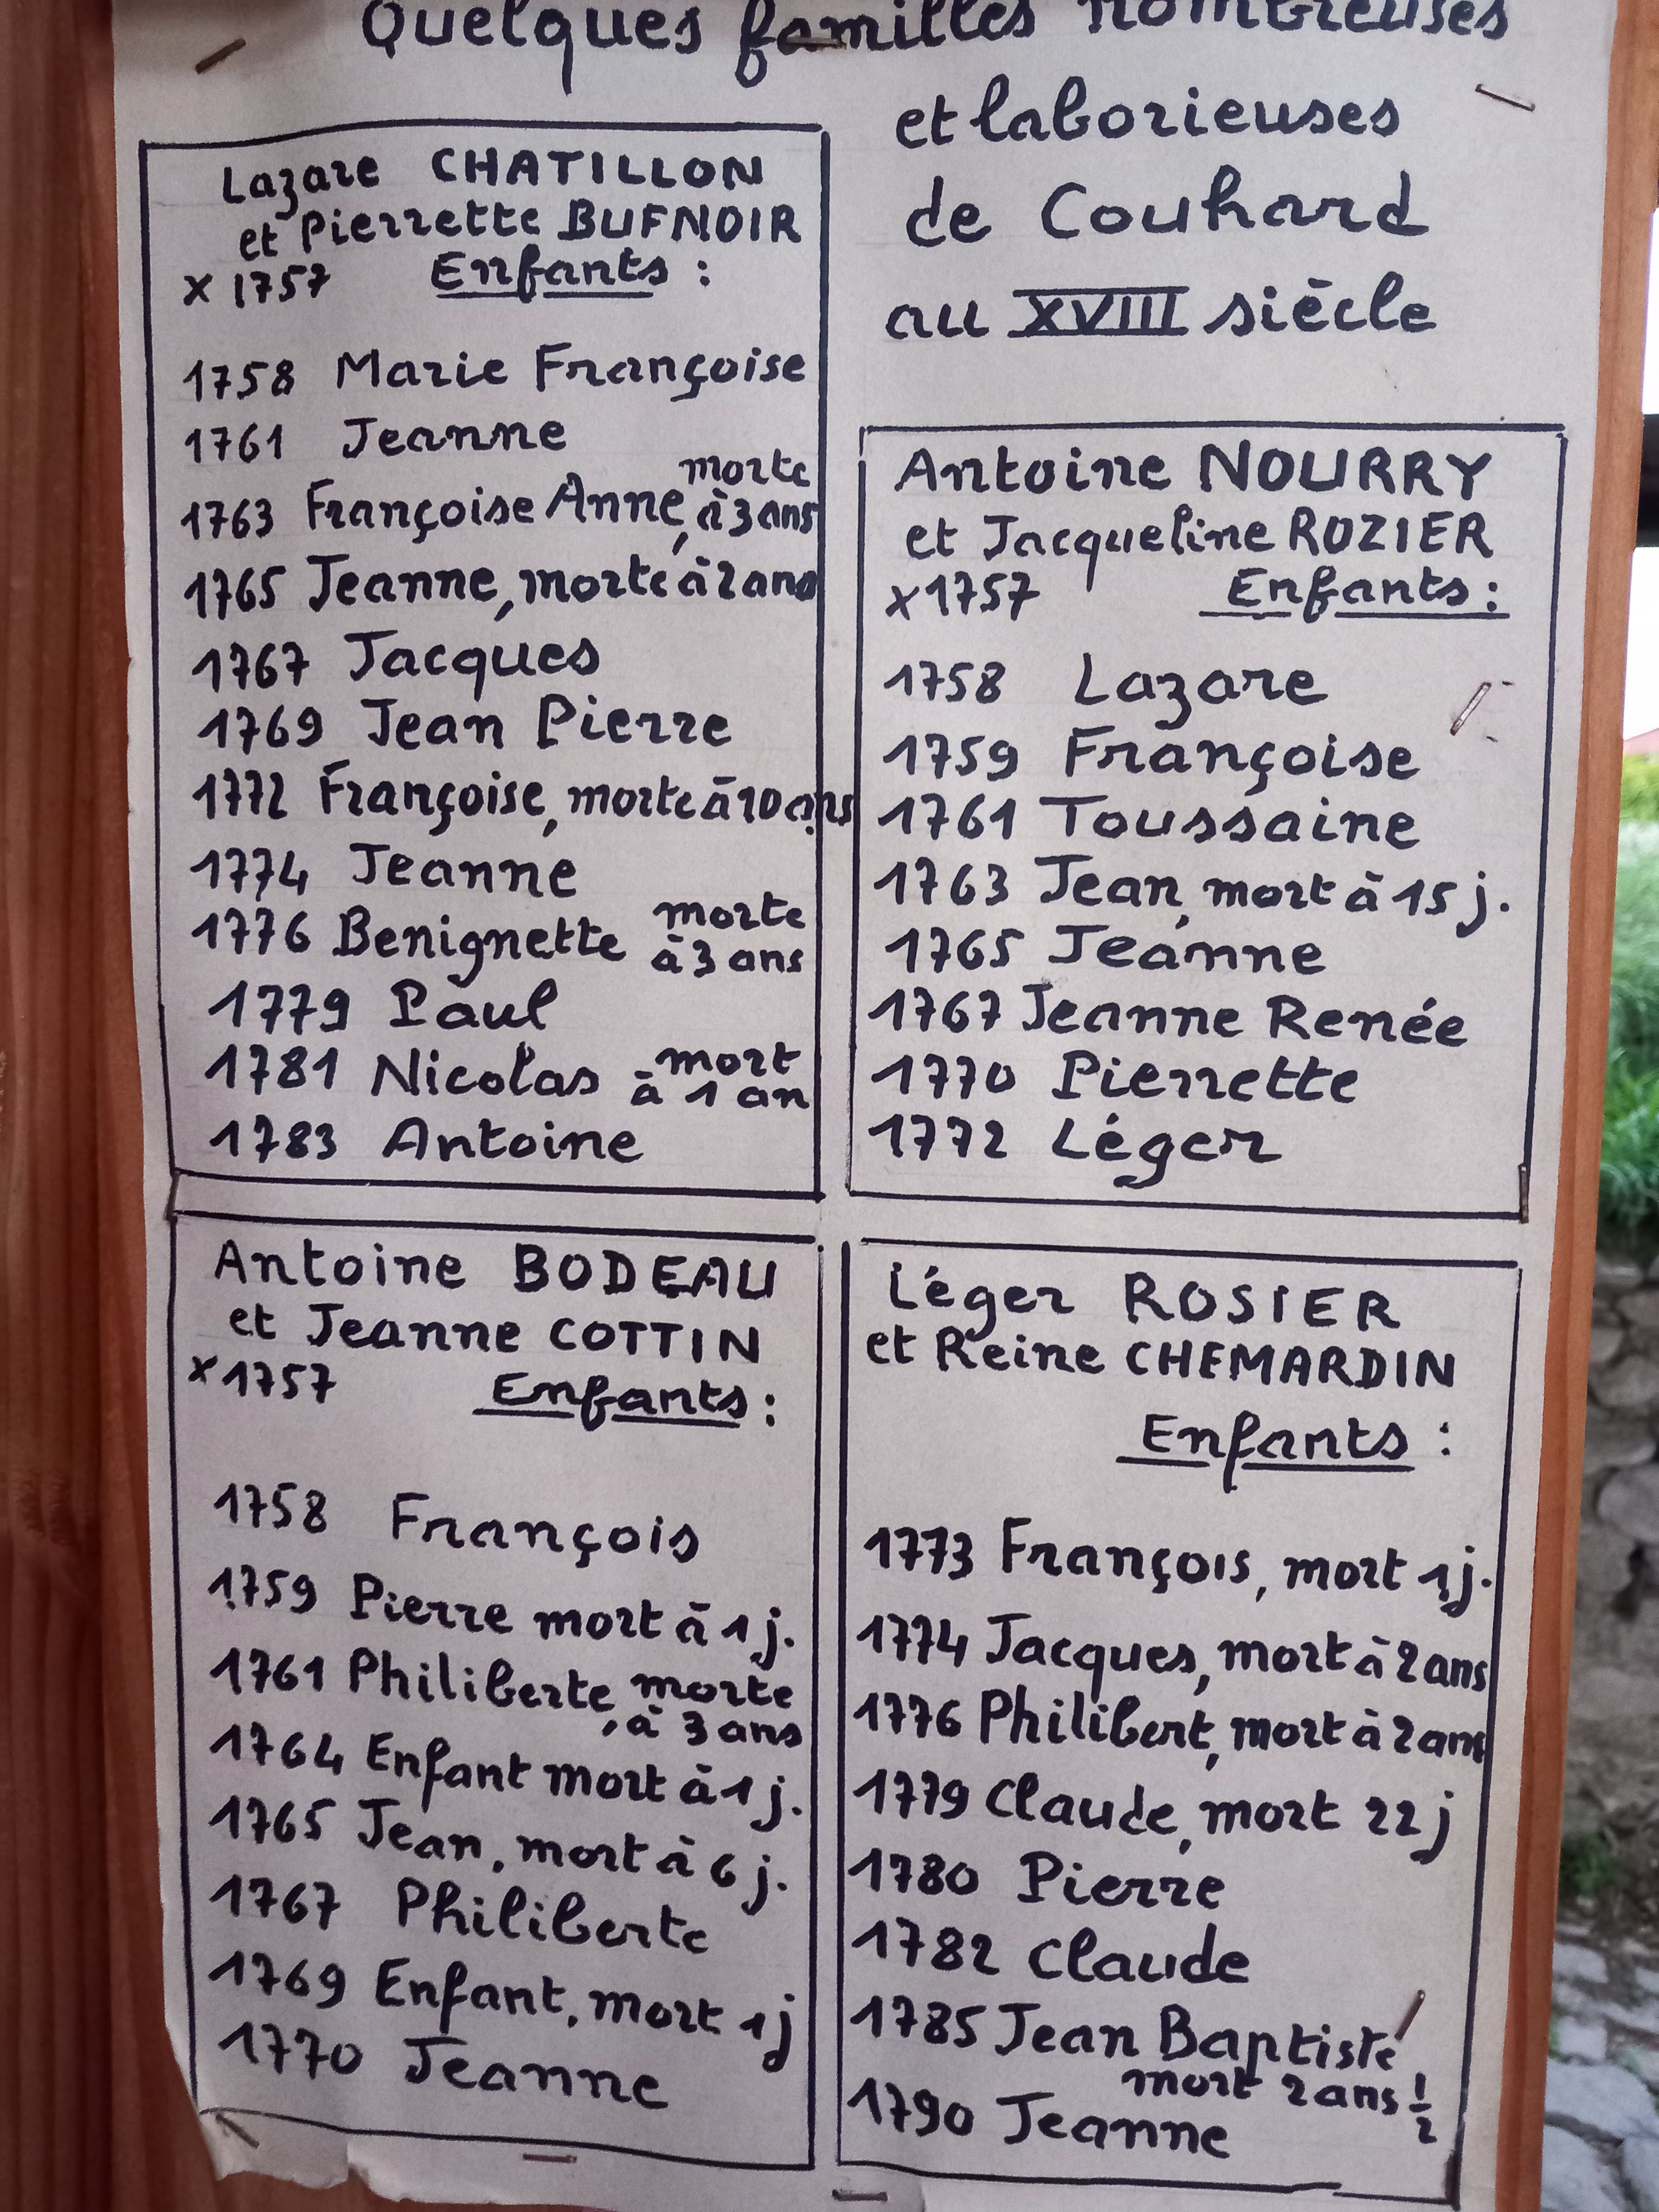 Quelques familles nombreuses
et laborieuses
de Couhard
au XVIII siècle
Lazare CHATILLON
et Pierrette BUFNOIR
x 1757 Enfants :
1758 Marie Françoise
1761 Jeanne
1763 Françoise Anne, morte à 3 ans
1765 Jeanne, morte à 2 ans
1767 Jacques
1769 Jean Pierre
1772 Françoise, morte à 10 ans
1774 Jeanne
1776 Benignette morte à 3 ans
1779 Paul
1781 Nicolas mort à 1 an
1783 Antoine
Antoine NOURRY
et Jacqueline ROZIER
x 1757 Enfants :
1758 Lazare
1759 Françoise
1761 Toussaine
1763 Jean, mort à 15 j.
1765 Jeanne
1767 Jeanne Renée
1770 Pierrette
1772 Léger
Antoine BODEAU
et Jeanne COTTIN
x 1757 Enfants :
1758 François
1759 Pierre mort à 1 j.
1761 Philiberte, morte à 3 ans
1764 Enfant mort à 1 j.
1765 Jean, mort à 6 j.
1767 Philiberte
1769 Enfant, mort 1 j
1770 Jeanne
Léger ROSIER
et Reine CHEMARDIN
Enfants :
1773 François, mort 1 j.
1774 Jacques, mort à 2 ans
1776 Philibert, mort à 2 ans
1779 Claude, mort 22 j
1780 Pierre
1782 Claude
1785 Jean Baptiste
mort 2 ans 1/2
1790 Jeanne